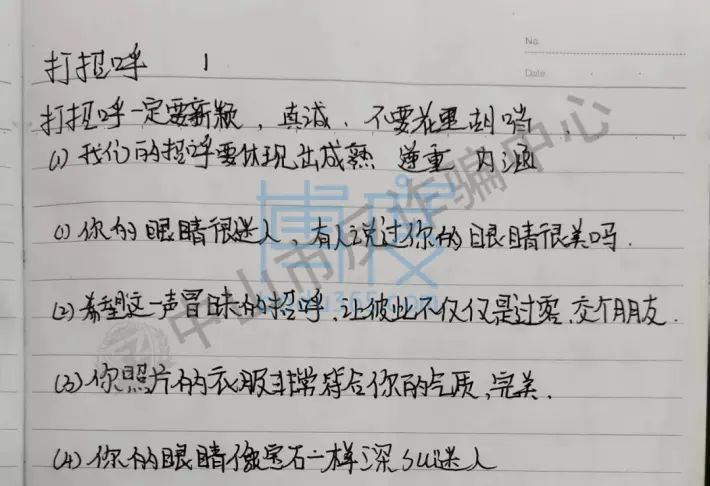 No.
Date
打招呼 1
打招呼一定要新颖，真诚，不要花里胡哨，
(1) 我们的招呼要体现出成熟 遂重 内涵
(1) 你的眼睛很迷人，有人说过你的眼睛很美吗.
(2) 希望这一声冒昧的招呼,让彼此不仅仅是过客,交个朋友.
(3) 你照片的衣服非常符合你的气质,完美.
(4) 你的眼睛像宝石一样深Su迷人
中山市反诈骗中心